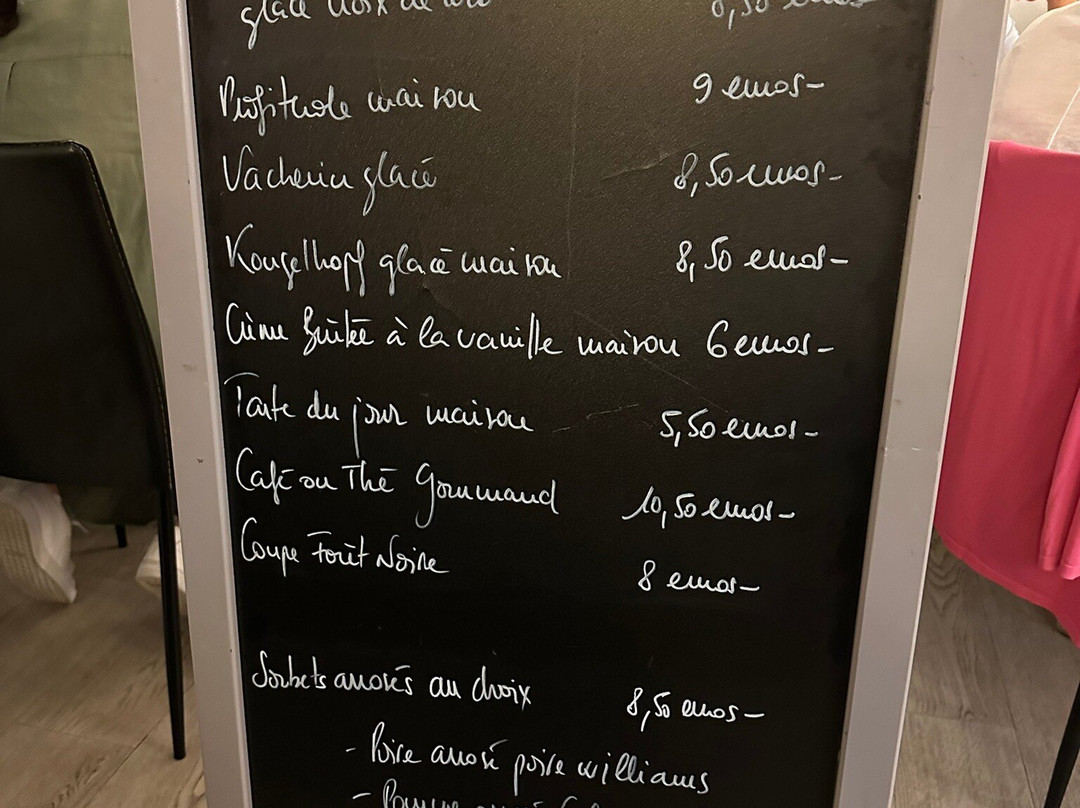 glace noix de coco
Profiterole maison 9 euros-
Vacherin glacé 8,50 euros-
Kougelhopf glacé maison 8,50 euros-
Crème brûlée à la vanille maison 6 euros-
Tarte du jour maison 5,50 euros-
Café ou Thé Gourmand 10,50 euros-
Coupe Forêt Noire 8 euros-
Sorbets arrosés au choix 8,50 euros-
- Poire arrosé poire williams
- Pomme arrosé